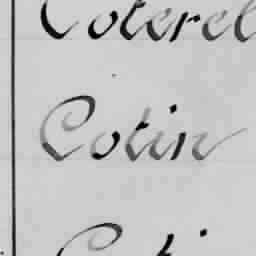 Coterel
Cotin